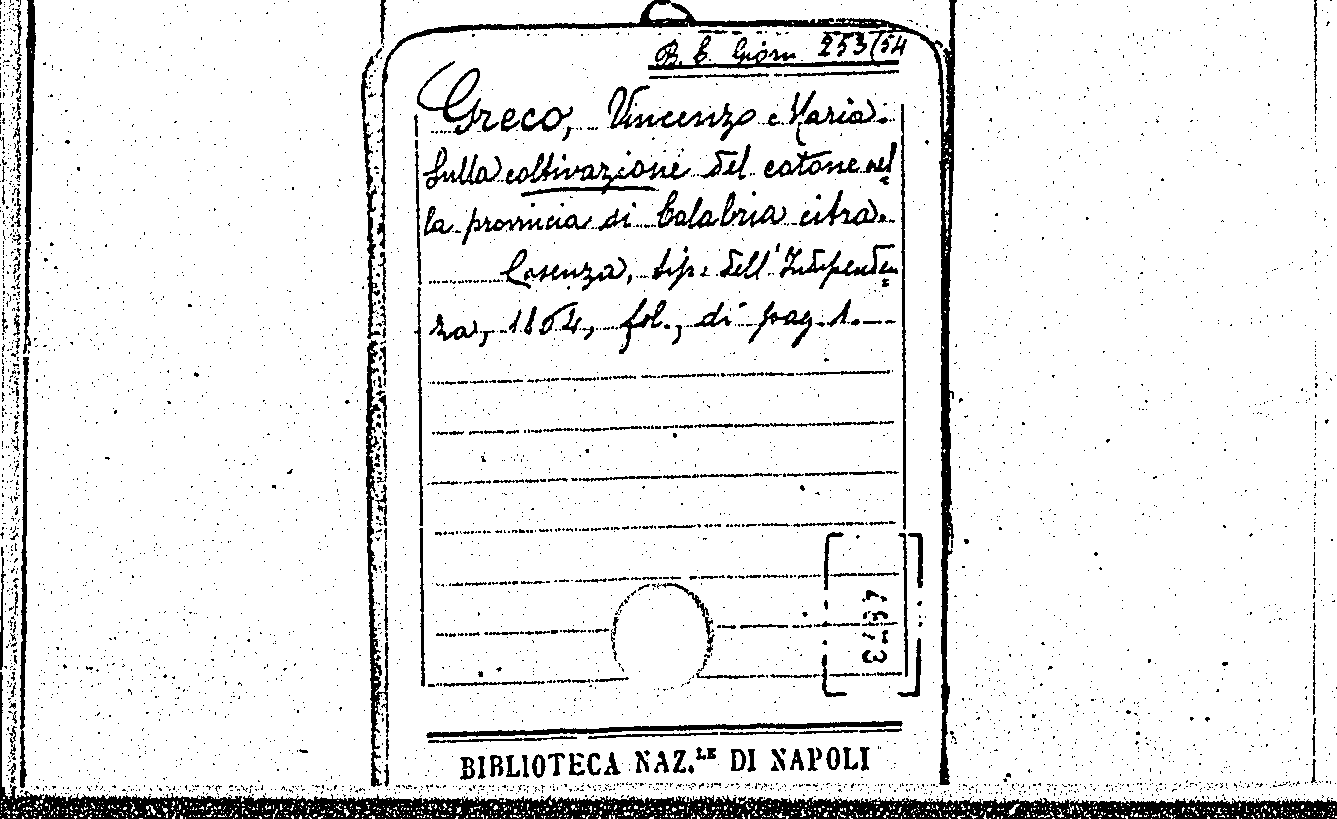 B. C. Giorn 253(54
Greco, Vincenzo e Maria.
Sulla coltivazione del cotone nel
la provincia di Calabria citra.
Cosenza, tip. dell'Indipenden
za, 1864, fol., di pag. 1.
BIBLIOTECA NAZ.LE DI NAPOLI